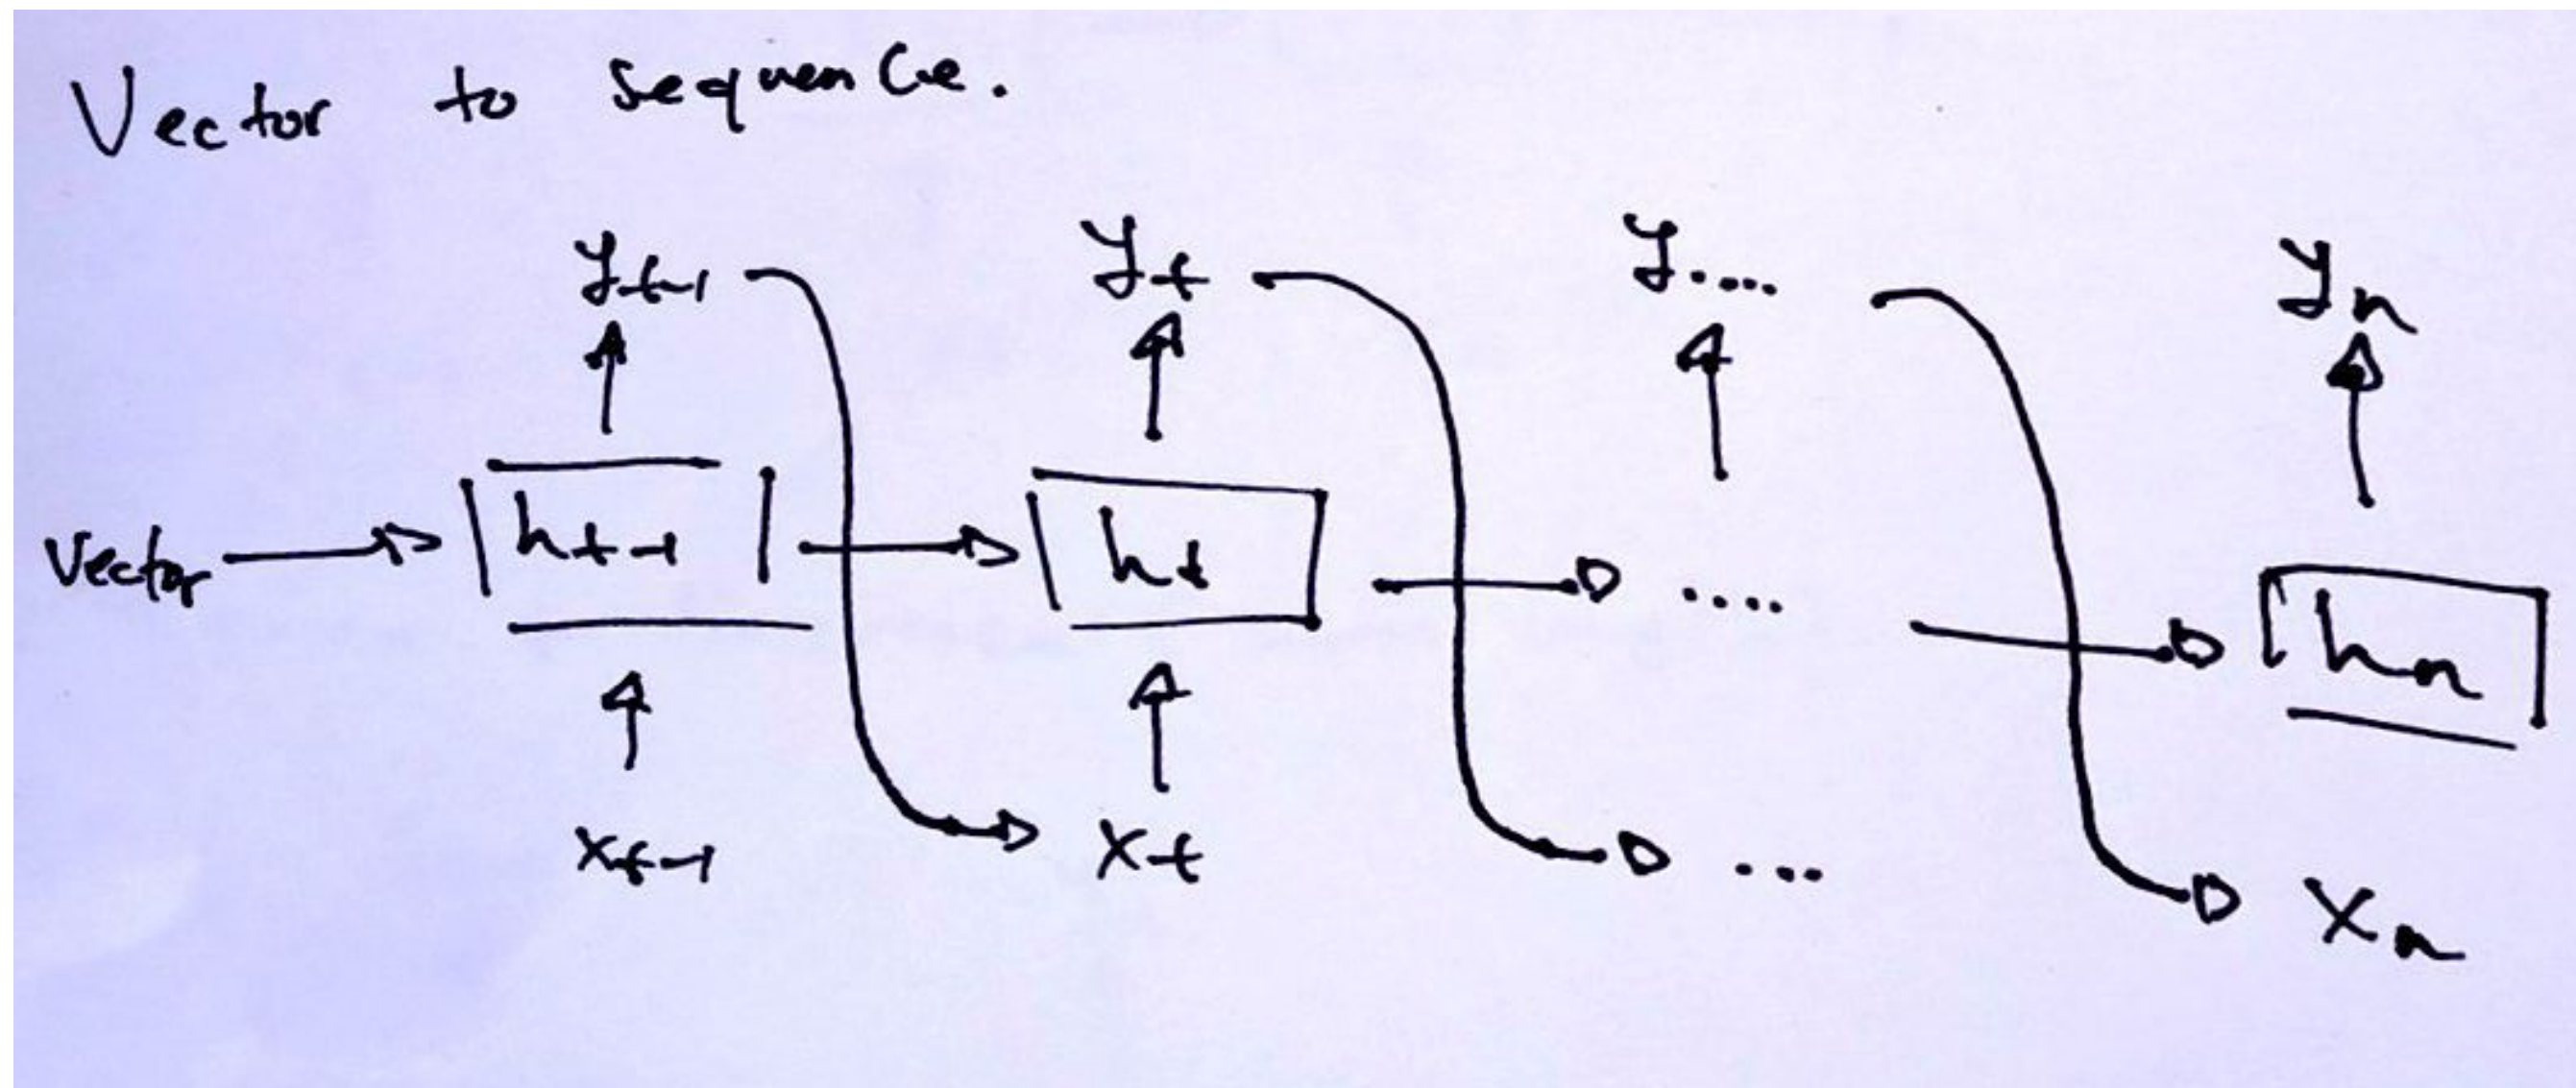 Vector to sequence.
yt-1 yt y.... yn
Vector ht-1 ht .... hn
xt-1 xt ... xn